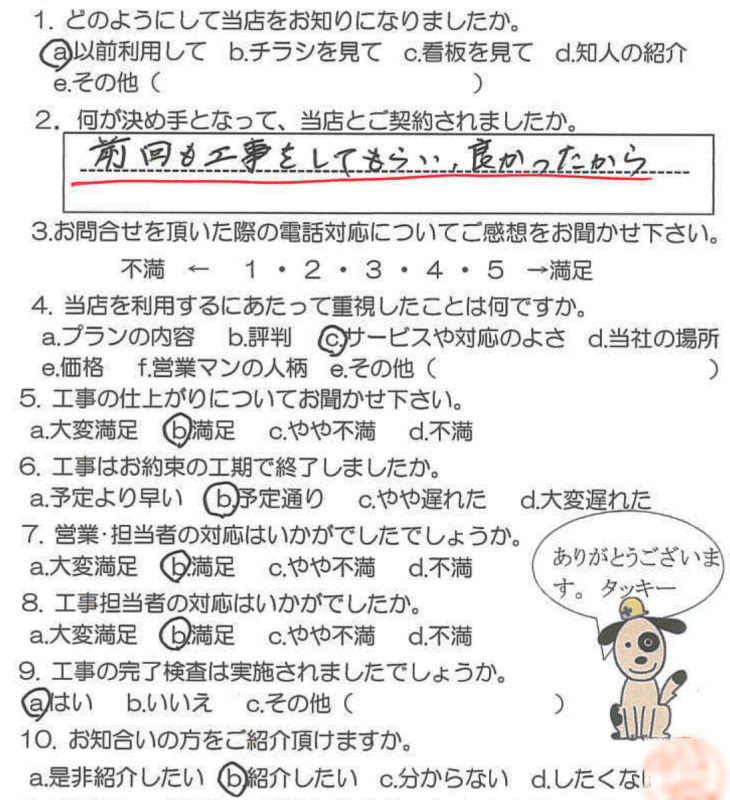 1. どのようにして当店をお知りになりましたか。
a.以前利用して b.チラシを見て c.看板を見て d.知人の紹介
e.その他（ ）
2. 何が決め手となって、当店とご契約されましたか。
前回も工事をしてもらい,良かったから
3.お問合せを頂いた際の電話対応についてご感想をお聞かせ下さい。
不満 ← 1・2・3・4・5 →満足
4. 当店を利用するにあたって重視したことは何ですか。
a.プランの内容 b.評判 c.サービスや対応のよさ d.当社の場所
e.価格 f.営業マンの人柄 e.その他（ ）
5. 工事の仕上がりについてお聞かせ下さい。
a.大変満足 b.満足 c.やや不満 d.不満
6. 工事はお約束の工期で終了しましたか。
a.予定より早い b.予定通り c.やや遅れた d.大変遅れた
7. 営業・担当者の対応はいかがでしたでしょうか。
a.大変満足 b.満足 c.やや不満 d.不満
ありがとうございま
す。 タッキー
8. 工事担当者の対応はいかがでしたか。
a.大変満足 b.満足 c.やや不満 d.不満
9. 工事の完了検査は実施されましたでしょうか。
a.はい b.いいえ c.その他（ ）
10. お知合いの方をご紹介頂けますか。
a.是非紹介したい b.紹介したい c.分からない d.したくな